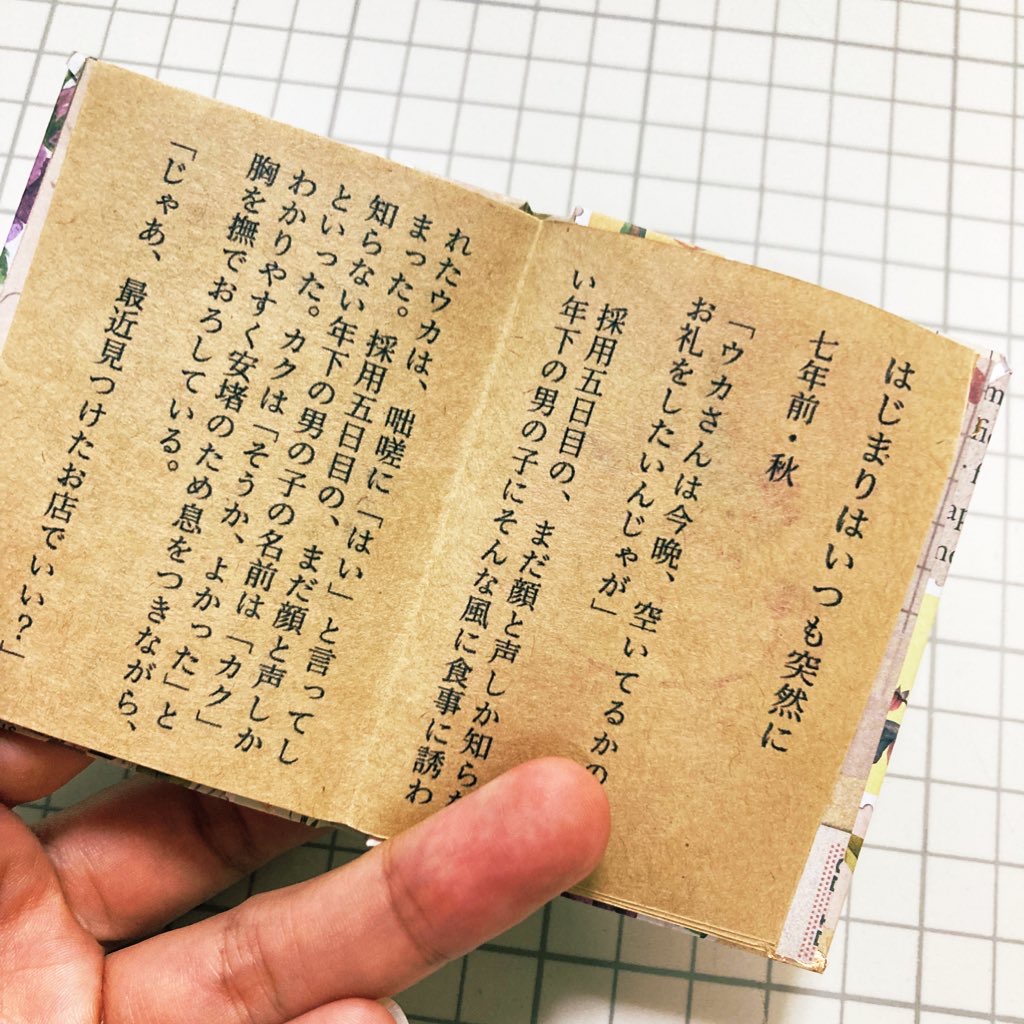 はじまりはいつも突然に
七年前・秋
「ウカさんは今晩、空いてるかの
お礼をしたいんじゃが」
採用五日目の、まだ顔と声しか知らな
い年下の男の子にそんな風に食事に誘わ
れたウカは、咄嗟に「はい」と言ってし
まった。採用五日目の、まだ顔と声しか
知らない年下の男の子の名前は「カク」
といった。カクは「そうか、よかった」と
わかりやすく安堵のため息をつきながら、
胸を撫でおろしている。
「じゃあ、最近見つけたお店でいい？」